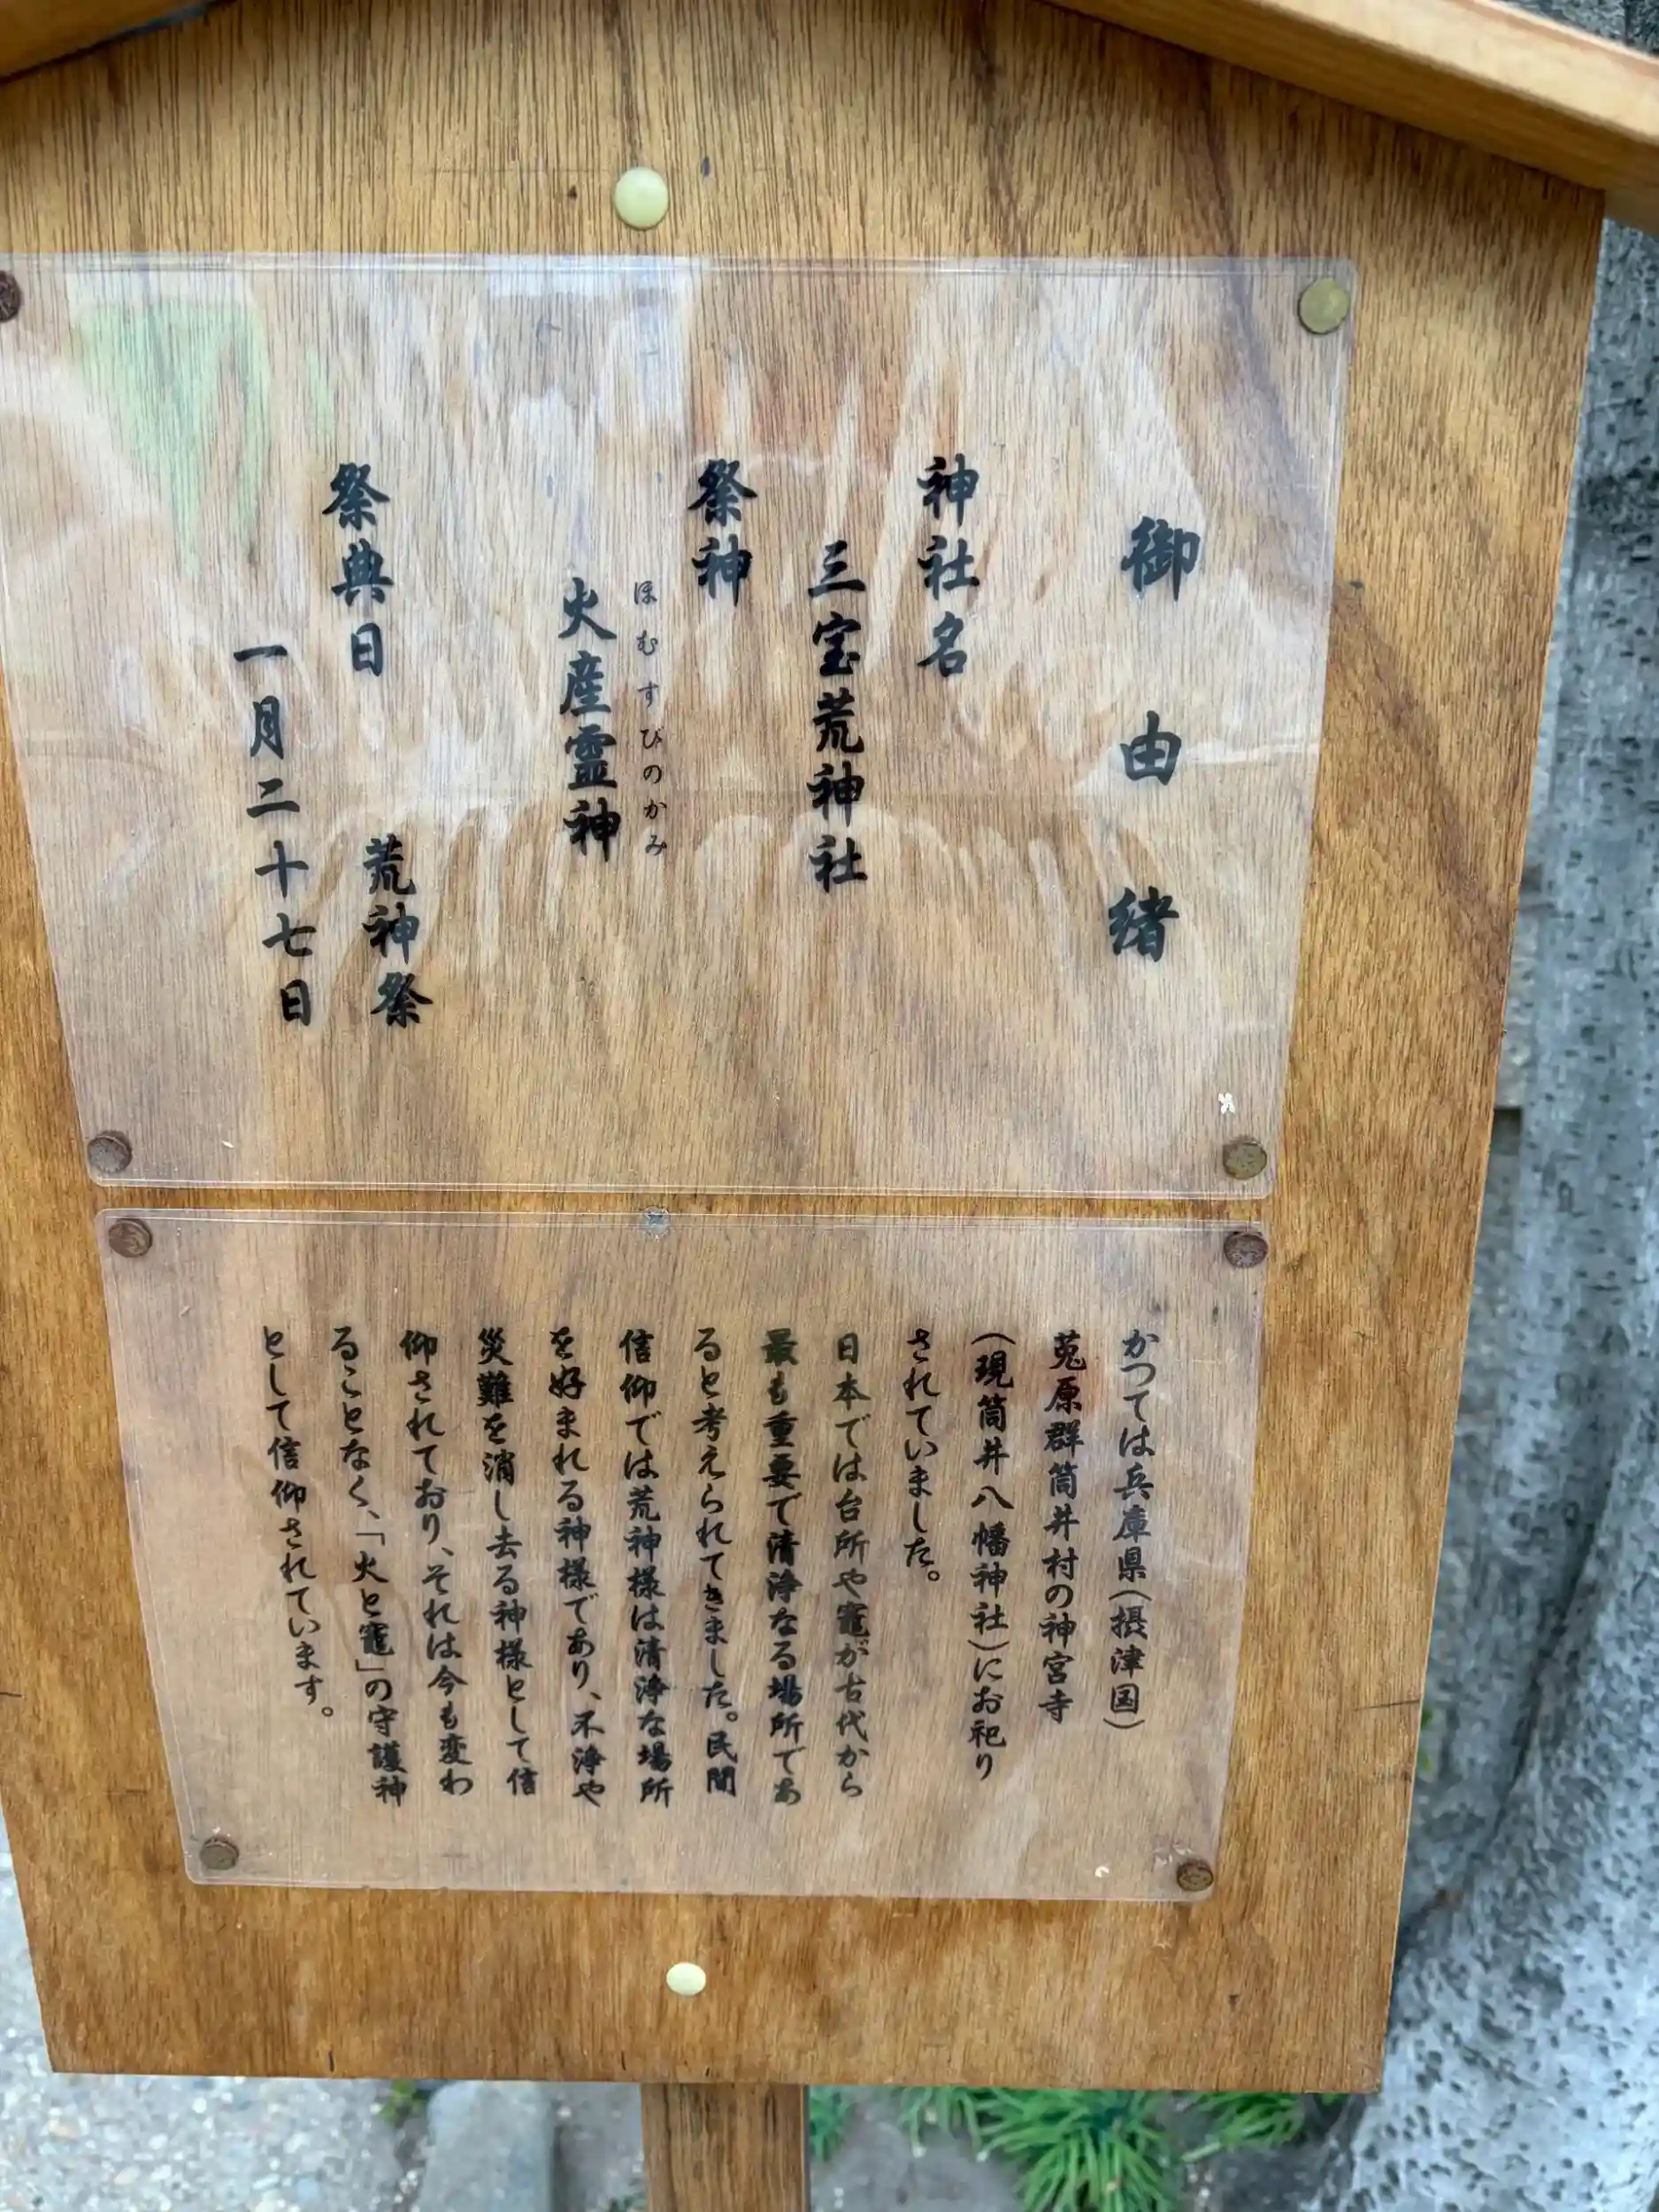 御由緒
神社名
三宝荒神社
祭神
ほむすびのかみ
火産霊神
祭典日　荒神祭
一月二十七日
かつては兵庫県(摂津国)
菟原群筒井村の神宮寺
(現筒井八幡神社)にお祀り
されていました。
日本では台所や竈が古代から
最も重要で清浄なる場所であ
ると考えられてきました。民間
信仰では荒神様は清浄な場所
を好まれる神様であり、不浄や
災難を消し去る神様として信
仰されており、それは今も変わ
ることなく、「火と竈」の守護神
として信仰されています。